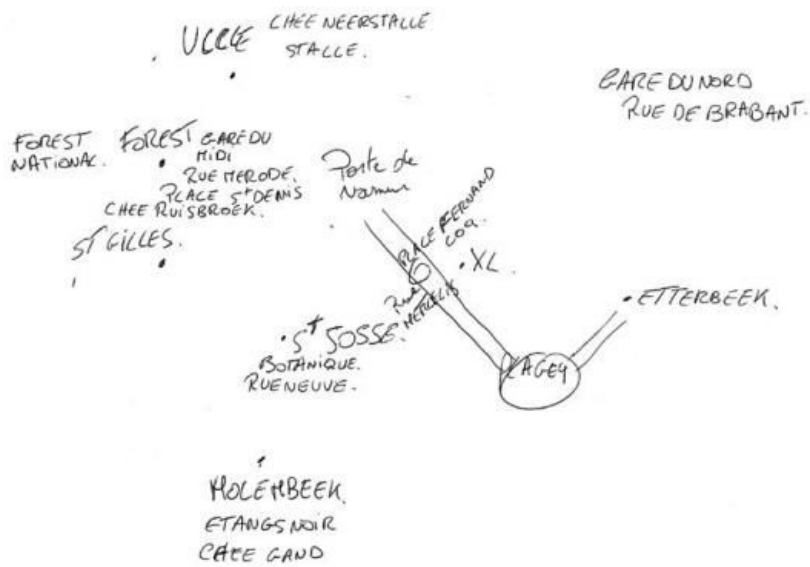 UCCLE
CHEE NEERSTALLE
STALLE.
GARE DU NORD
RUE DE BRABANT.
FOREST
NATIONAL.
FOREST
GARE DU
MIDI
RUE MERODE.
PLACE St DENIS
CHEE RUISBROEK.
ST GILLES.
Porte de
Namur
PLACE FERNAND
COQ.
XL.
Rue
MERCELIS
ETTERBEEK.
St JOSSE.
BOTANIQUE.
RUE NEUVE.
FLAGEY
MOLEMBEEK.
ETANGS NOIR
CHEE GAND